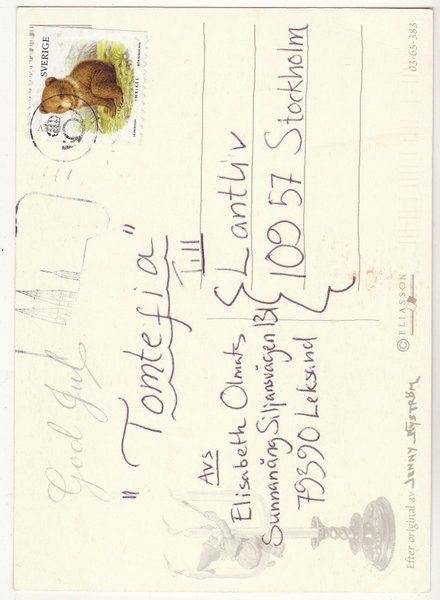 SVERIGE
03-65-383
God Jul
"Tomtefia"
Till
Lantliv
109 57 Stockholm
Avs
Elisabeth Olmats
Sunnanäng Siljansvägen 131
79390 Leksand
© ELIASSON
Efter original av JENNY NYSTRÖM